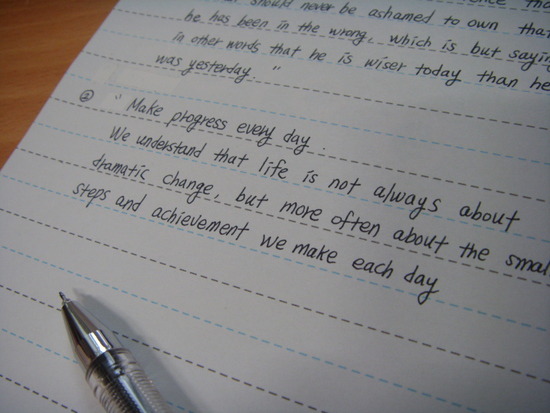 should never be ashamed to own that
he has been in the wrong, which is but saying
in other words that he is wiser today than he
was yesterday. "
② " Make progress every day.
We understand that life is not always about
dramatic change, but more often about the smal
steps and achievement we make each day